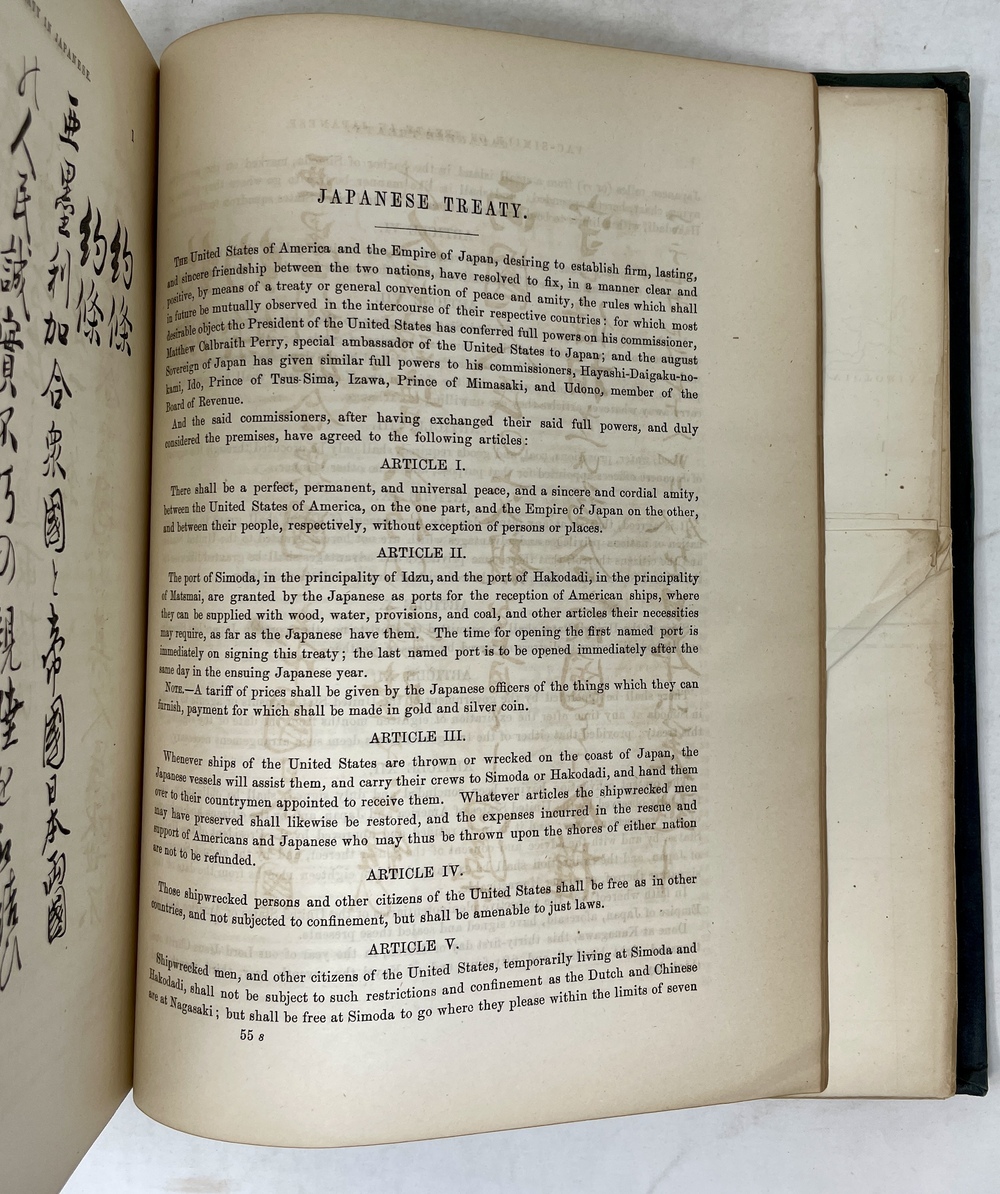 IN JAPANESE.
1
約條
約條
亜墨利加合衆國と帝國日本兩國
の人民誠實不朽の親睦を取結ひ
JAPANESE TREATY.
THE United States of America and the Empire of Japan, desiring to establish firm, lasting,
and sincere friendship between the two nations, have resolved to fix, in a manner clear and
positive, by means of a treaty or general convention of peace and amity, the rules which shall
in future be mutually observed in the intercourse of their respective countries: for which most
desirable object the President of the United States has conferred full powers on his commissioner,
Matthew Calbraith Perry, special ambassador of the United States to Japan; and the august
Sovereign of Japan has given similar full powers to his commissioners, Hayashi-Daigaku-no-
kami, Ido, Prince of Tsus-Sima, Izawa, Prince of Mimasaki, and Udono, member of the
Board of Revenue.
And the said commissioners, after having exchanged their said full powers, and duly
considered the premises, have agreed to the following articles:
ARTICLE I.
There shall be a perfect, permanent, and universal peace, and a sincere and cordial amity,
between the United States of America, on the one part, and the Empire of Japan on the other,
and between their people, respectively, without exception of persons or places.
ARTICLE II.
The port of Simoda, in the principality of Idzu, and the port of Hakodadi, in the principality
of Matsmai, are granted by the Japanese as ports for the reception of American ships, where
they can be supplied with wood, water, provisions, and coal, and other articles their necessities
may require, as far as the Japanese have them. The time for opening the first named port is
immediately on signing this treaty; the last named port is to be opened immediately after the
same day in the ensuing Japanese year.
NOTE.—A tariff of prices shall be given by the Japanese officers of the things which they can
furnish, payment for which shall be made in gold and silver coin.
ARTICLE III.
Whenever ships of the United States are thrown or wrecked on the coast of Japan, the
Japanese vessels will assist them, and carry their crews to Simoda or Hakodadi, and hand them
over to their countrymen appointed to receive them. Whatever articles the shipwrecked men
may have preserved shall likewise be restored, and the expenses incurred in the rescue and
support of Americans and Japanese who may thus be thrown upon the shores of either nation
are not to be refunded.
ARTICLE IV.
Those shipwrecked persons and other citizens of the United States shall be free as in other
countries, and not subjected to confinement, but shall be amenable to just laws.
ARTICLE V.
Shipwrecked men, and other citizens of the United States, temporarily living at Simoda and
Hakodadi, shall not be subject to such restrictions and confinement as the Dutch and Chinese
are at Nagasaki; but shall be free at Simoda to go where they please within the limits of seven
55 s